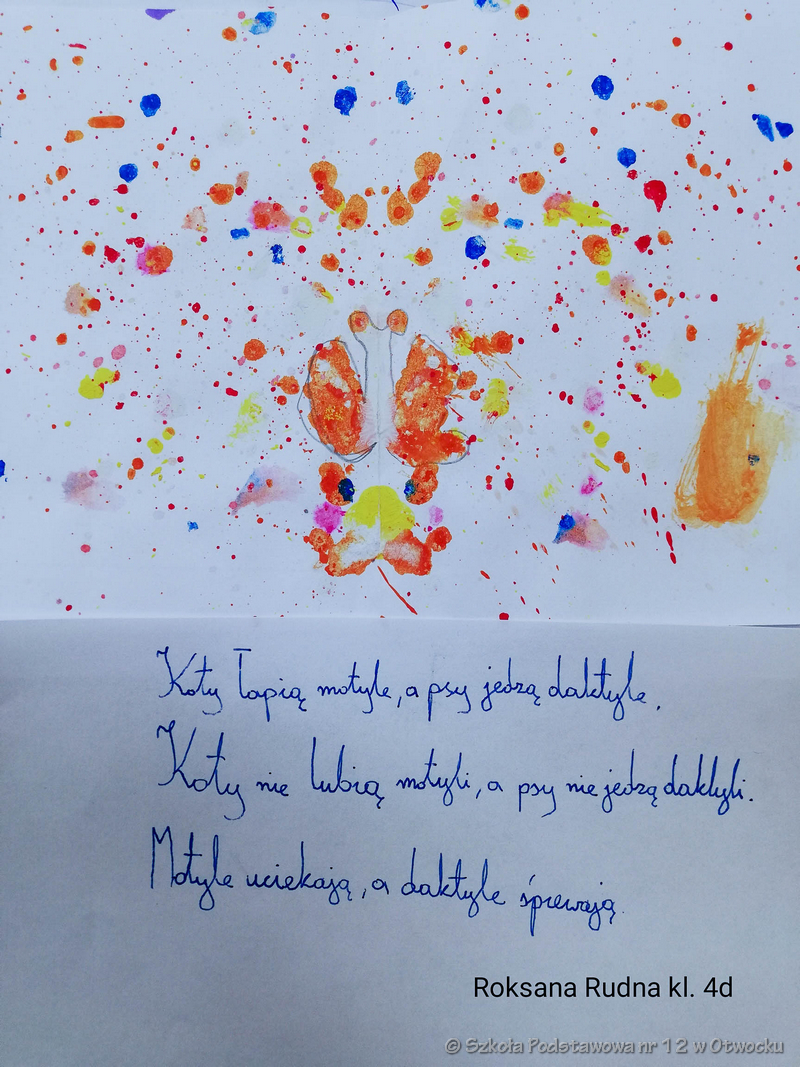 Koty łapią motyle, a psy jedzą daktyle.
Koty nie lubią motyli, a psy nie jedzą daktyli.
Motyle uciekają, a daktyle śpiewają.
Roksana Rudna kl. 4d
© Szkoła Podstawowa nr 12 w Otwocku